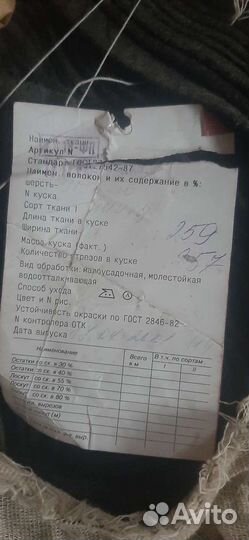 Наимен. ткани
Артикул N
Стандарт ГОСТ 7542-87
Наимен. волокон и их содержание в %:
шерсть-
N куска
Сорт ткани I
Длина ткани в куске
Ширина ткани
259
Масса куска (факт.)
Количество отрезов в куске
257
Вид обработки: малоусадочная, молестойкая
водоотталкивающая
Способ ухода
Цвет и N рис.
Устойчивость окраски по ГОСТ 2846-82
N контролера ОТК
Дата выпуска
Наименование Всего в м В т. ч. по сортам
I II
Остатки со ск. в 30 %
Остатки со ск. в 40 %
Лоскут со ск. в 55 %
Лоскут со ск. в 70 %
со ск. в 80 %
вырезов
(м)
выр.
Avito